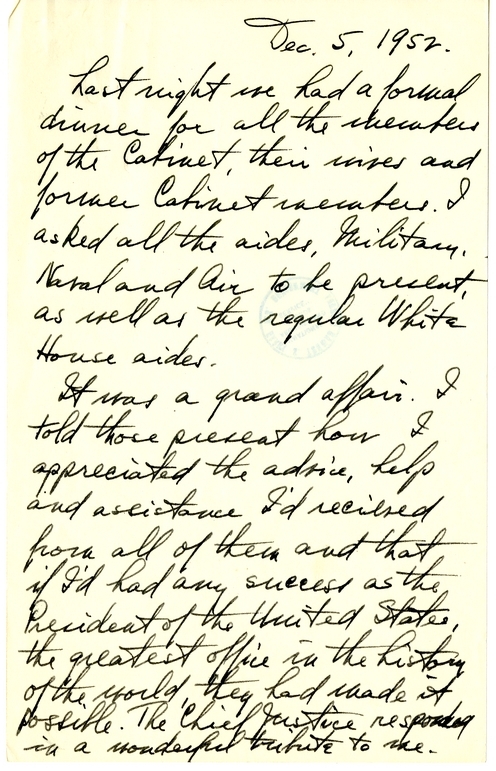 Dec. 5, 1952.
Last night we had a formal
dinner for all the members
of the Cabinet, their wives and
former Cabinet members. I
asked all the aides, Military,
Naval and Air to be present,
as well as the regular White
House aides.
It was a grand affair. I
told those present how I
appreciated the advice, help
and assistance I'd recieved
from all of them and that
if I'd had any success as the
President of the United States,
the greatest office in the history
of the world, they had made it
possible. The Chief Justice responded
in a wonderful tribute to me.